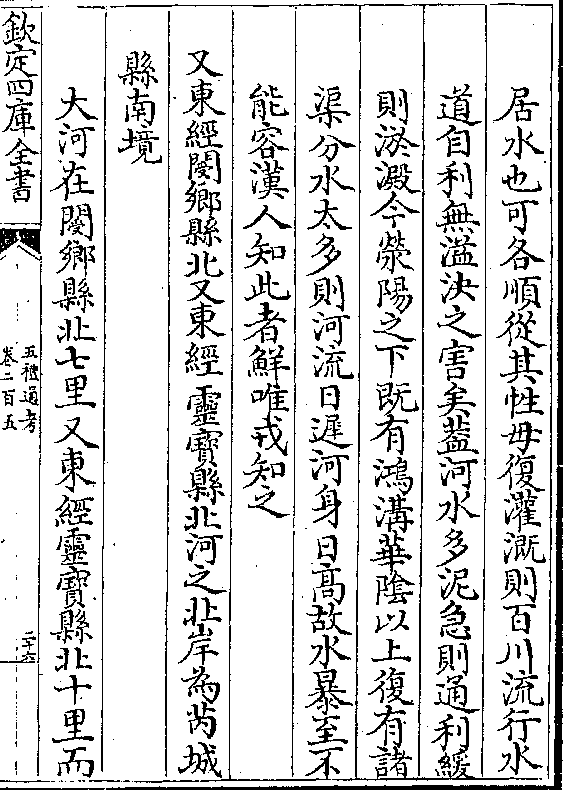 居水也可各順從其性毋復灌溉則百川流行水
道自利無溢決之害矣蓋河水多泥急則通利緩
則淤澱今滎陽之下既有鴻溝華陰以上復有諸
渠分水太多則河流日遲河身日高故水暴至不
能容漢人知此者鮮唯戎知之
又東經閿鄉縣北又東經靈寶縣北河之北岸為芮城
縣南境
大河在閿鄉縣北七里又東經靈寶縣北十里而
欽定四庫全書
五禮通考
卷二百五
二十六